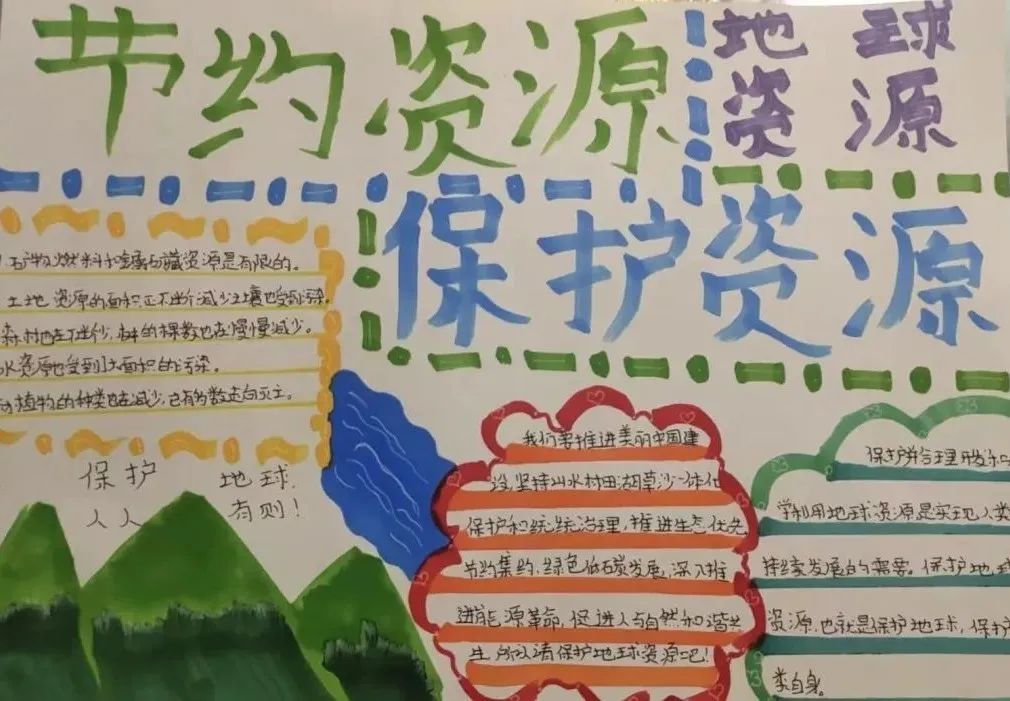 节约资源
地球
资源
保护资源
物燃料和金属矿藏资源是有限的。
土地资源的面积正不断减少土壤也受到污染。
森林地在不断少,树的棵数也在慢慢减少。
水资源也受到大面积的污染。
植物的种类也在减少,已有少数走向灭亡。
保护 地球,
人人 有则!
我们要推进美丽中国建
设,坚持山水村田湖草沙一体化
保护和统统治理,推进生态优先
节约集约、绿色低碳发展,深入推
进能源革命,促进人与自然和谐共
生,所以请保护地球资源吧!
保护并合理开发和
学利用地球资源是实现人类
持续发展的需要。保护地球
资源,也就是保护地球,保护
类自身。